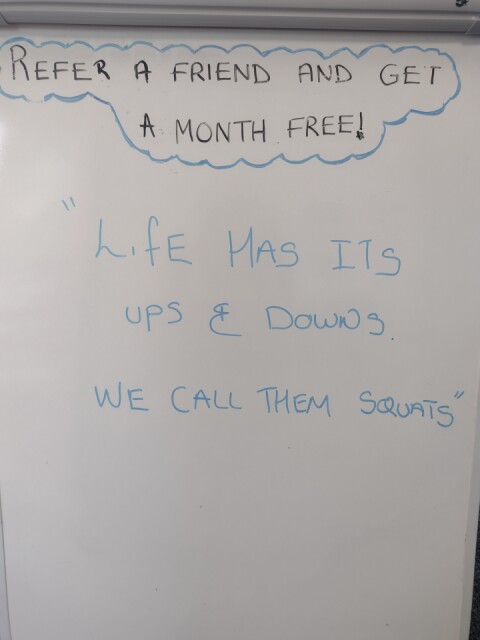 REFER A FRIEND AND GET
A MONTH FREE!
"LIFE HAS ITS
UPS & DOWNS.
WE CALL THEM SQUATS"